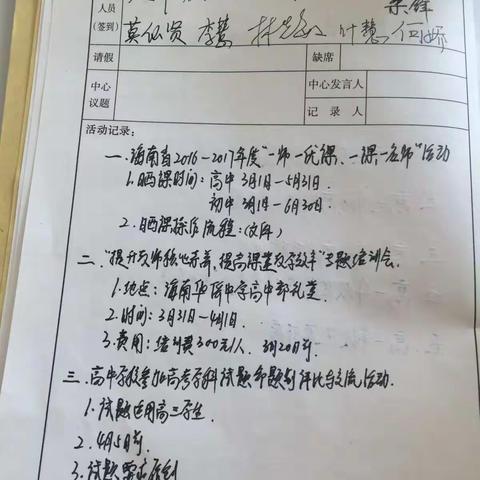 人员
(签到)
莫似贤 李慧 叶慧
请假 缺席
中心议题 中心发言人
记录人
活动记录:
一.海南省2016—2017年度“一师一优课、一课一名师”活动
1.晒课时间:高中 3月1日—5月31日.
初中 3月1日—6月30日.
2.晒课操作流程:(文件)
二.“提升教师核心素养,提高课堂教学效率”专题培训会.
1.地点:海南华侨中学高中部礼堂.
2.时间:3月31日—4月1日.
3.费用:培训费300元/人. 3月20日前.
三.高中学校参加高考学科试题命题制评比与交流活动.
1.试题适用高三学生
2.4月5日前.
3.试题要求原创